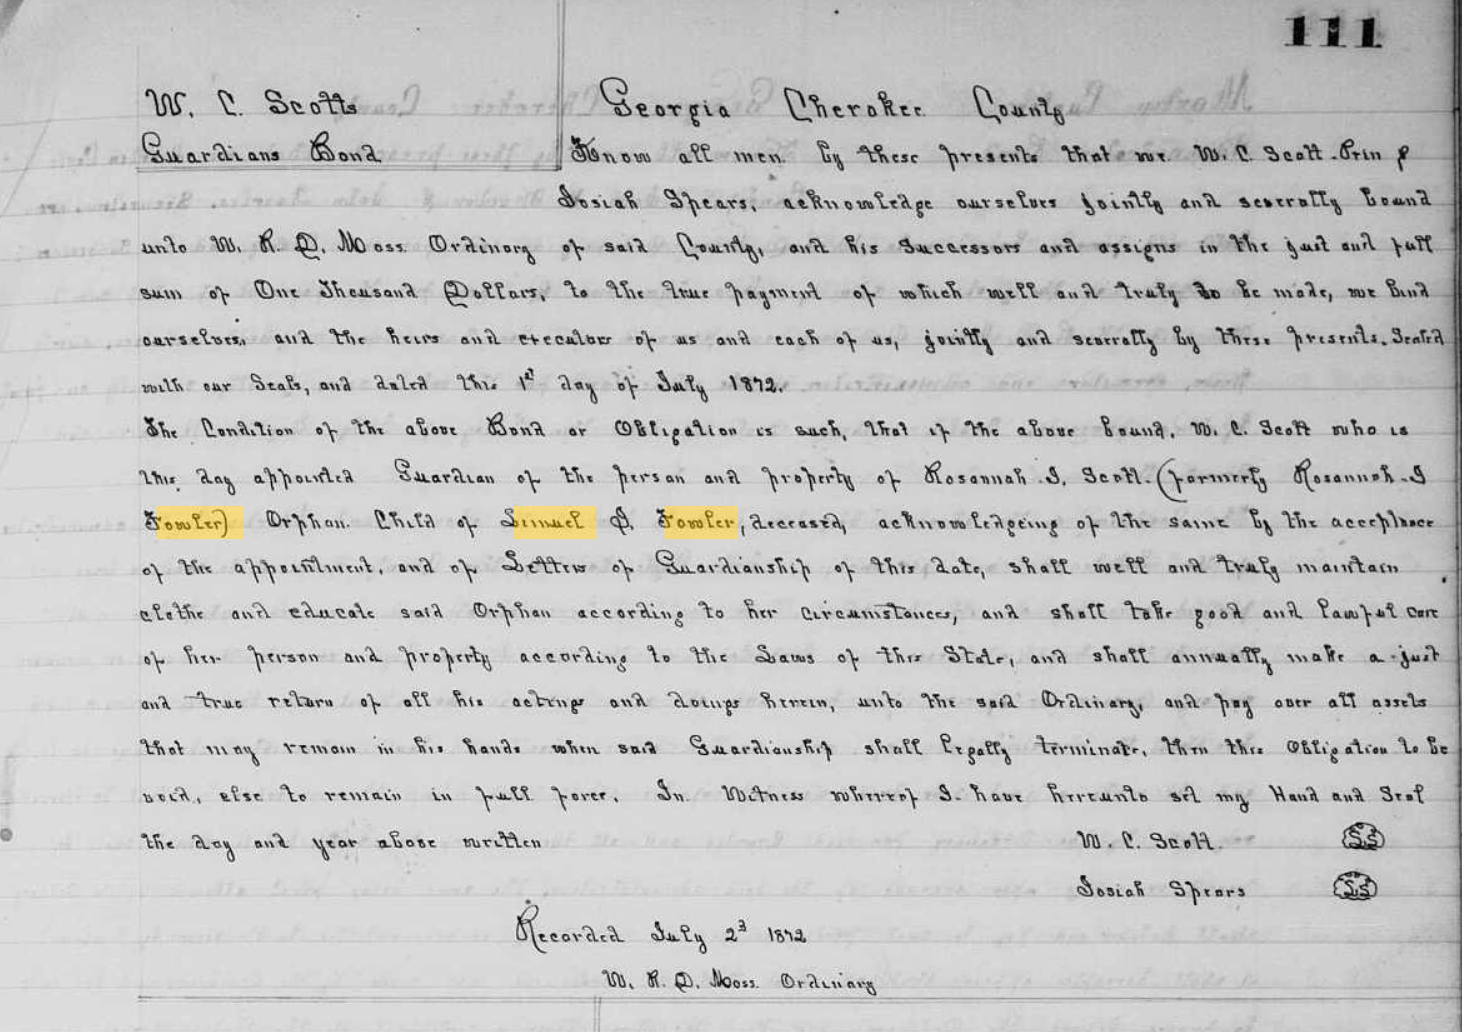 111
W. C. Scotts
Guardians Bond
Georgia Cherokee County
Know all men by these presents that we W. C. Scott Prin &
Josiah Spears, acknowledge ourselves jointly and severally bound
unto W. R. D. Moss Ordinary of said County, and his successors and assigns in the just and full
sum of One Thousand Dollars, to the true payment of which well and truly to be made, we bind
ourselves, and the heirs and executors of us and each of us, jointly and severally by these presents. Sealed
with our Seals, and dated this 1st day of July 1872.
The Condition of the above Bond or Obligation is such, that if the above bound, W. C. Scott who is
this day appointed Guardian of the person and property of Rosannah I. Scott (formerly Rosannah I
Fowler) Orphan Child of Lemuel D. Fowler, deceased, acknowledgeing of the same by the acceptance
of the appointment, and of Letters of Guardianship of this date, shall well and truly maintain
clothe and educate said Orphan according to her circumstances, and shall take good and lawful care
of her person and property according to the Laws of this State, and shall annually make a just
and true return of all his actings and doings herein, unto the said Ordinary, and pay over all assets
that may remain in his hands when said Guardianship shall legally terminate, then this Obligation to be
void, else to remain in full force. In Witness whereof I have hereunto set my Hand and Seal
the day and year above written
W. C. Scott LS
Josiah Spears LS
Recorded July 2d 1872
W. R. D. Moss Ordinary